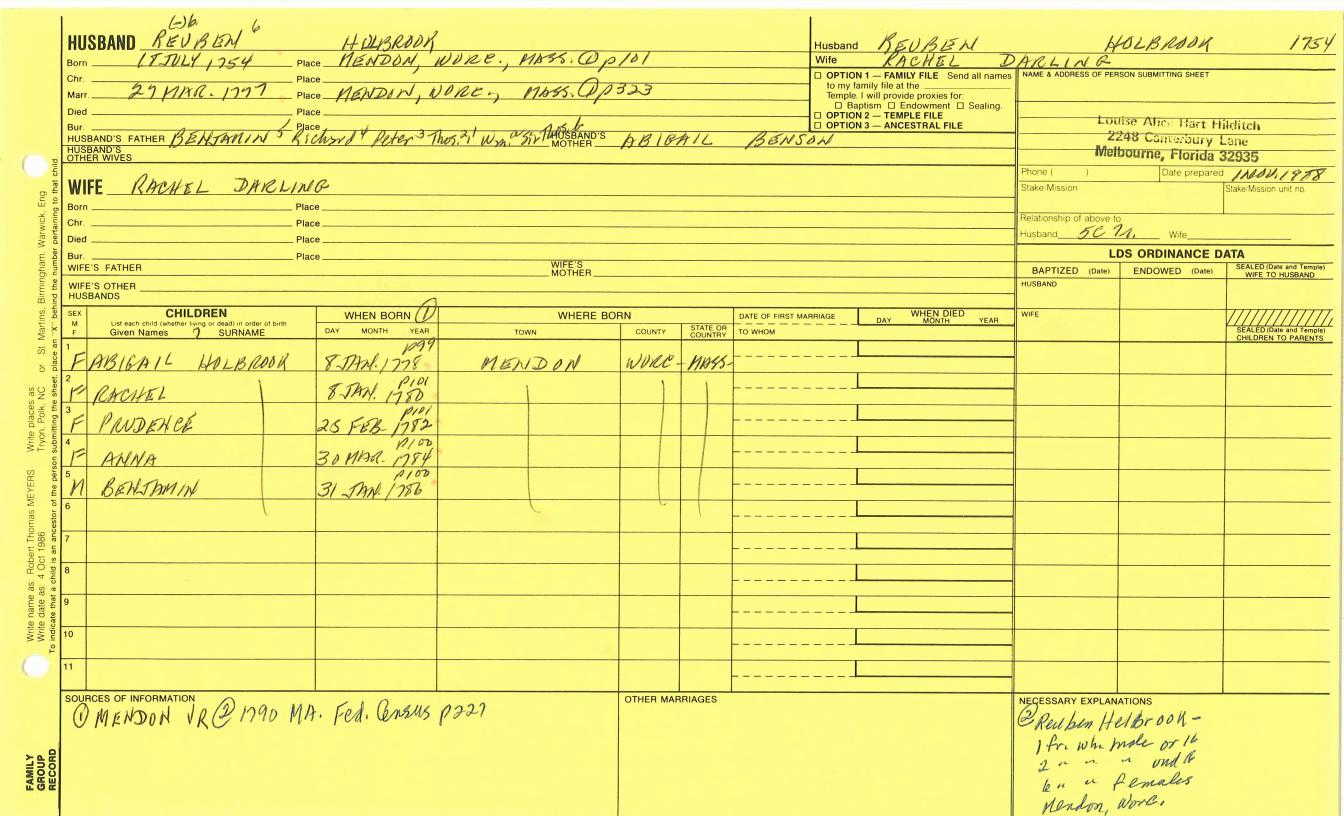 (-)b.
HUSBAND REUBEN 6 HOLBROOK
Born 17 JULY, 1754 Place MENDON, WORC., MASS. ① p101
Chr. Place
Marr. 27 MAR. 1777 Place MENDON, WORC., MASS. ① p323
Died Place
Bur. Place
HUSBAND'S FATHER BENJAMIN 5 Richard 4 Peter 3 Thos. 2,1 Wm. HUSBAND'S MOTHER ABIGAIL BENSON
HUSBAND'S OTHER WIVES
WIFE RACHEL DARLING
Born Place
Chr. Place
Died Place
Bur. Place
WIFE'S FATHER WIFE'S MOTHER
WIFE'S OTHER HUSBANDS
Husband REUBEN HOLBROOK 1754
Wife RACHEL DARLING
☐ OPTION 1 — FAMILY FILE Send all names
to my family file at the
Temple. I will provide proxies for:
☐ Baptism ☐ Endowment ☐ Sealing.
☐ OPTION 2 — TEMPLE FILE
☐ OPTION 3 — ANCESTRAL FILE
NAME & ADDRESS OF PERSON SUBMITTING SHEET
Louise Alice Hart Hilditch
2248 Canterbury Lane
Melbourne, Florida 32935
Phone ( ) Date prepared 1 NOV. 1988
Stake/Mission Stake/Mission unit no.
Relationship of above to
Husband 5C Wife
LDS ORDINANCE DATA
BAPTIZED (Date) ENDOWED (Date) SEALED (Date and Temple) WIFE TO HUSBAND
HUSBAND
WIFE
SEALED (Date and Temple) CHILDREN TO PARENTS
SEX M F CHILDREN WHEN BORN ① WHERE BORN DATE OF FIRST MARRIAGE WHEN DIED
List each child (whether living or dead) in order of birth
Given Names 7 SURNAME DAY MONTH YEAR TOWN COUNTY STATE OR COUNTRY TO WHOM DAY MONTH YEAR
1 F ABIGAIL HOLBROOK 8 JAN. 1778 p99 MENDON WORC- MASS-
2 F RACHEL 8 JAN. 1780 p101
3 F PRUDENCE 25 FEB. 1782 p101
4 F ANNA 30 MAR. 1784 p100
5 M BENJAMIN 31 JAN. 1786 p100
6
7
8
9
10
11
SOURCES OF INFORMATION
① MENDON VR ② 1790 MA. Fed. Census p227
OTHER MARRIAGES
NECESSARY EXPLANATIONS
② Reuben Holbrook-
1 fr. wh. male or 16
2 " " " und 16
6 " " females
Mendon, Worc.
Write name as: Robert Thomas MEYERS Write places as: Tryon, Polk, NC or St. Martins, Birmingham, Warwick, Eng
Write date as: 4 Oct 1986
To indicate that a child is an ancestor of the person submitting the sheet, place an "X" behind the number pertaining to that child
FAMILY GROUP RECORD